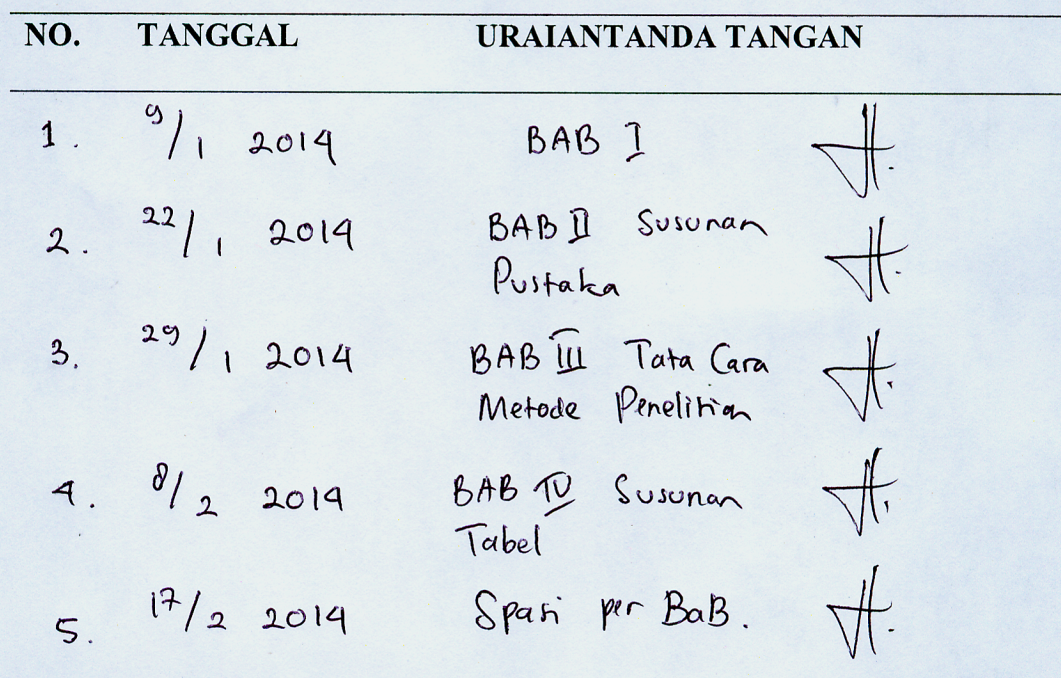 NO. TANGGAL URAIANTANDA TANGAN
1. 9/1 2014 BAB I
2. 22/1 2014 BAB II Susunan
Pustaka
3. 29/1 2014 BAB III Tata Cara
Metode Penelitian
4. 8/2 2014 BAB IV Susunan
Tabel
5. 17/2 2014 Spasi per BaB.